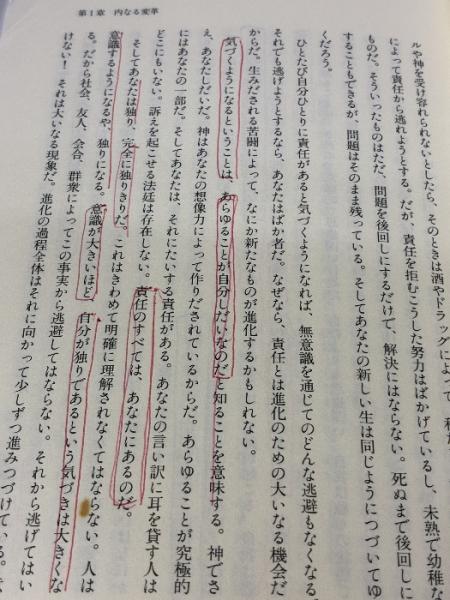 第1章　内なる変革
ルや神を受け容れられないとしたら、そのときは酒やドラッグによって、
によって責任から逃れようとする。だが、責任を拒むこうした努力はばかげているし、未熟で幼稚な
ものだ。そういったものはただ、問題を後回しにするだけで、解決にはならない。死ぬまで後回しに
することもできるが、問題はそのまま残っている。そしてあなたの新しい生は同じようにつづいてゆ
くだろう。
ひとたび自分ひとりに責任があると気づくようになれば、無意識を通じてのどんな逃避もなくなる。
それでも逃げようとするなら、あなたはばか者だ。なぜなら、責任とは進化のための大いなる機会だ
からだ。生みだされる苦闘によって、なにか新たなものが進化するかもしれない。
気づくようになるということは、あらゆることが自分しだいなのだと知ることを意味する。神でさ
え、あなたしだいだ。神はあなたの想像力によって作りだされているからだ。あらゆることが究極的
にはあなたの一部だ。そしてあなたは、それにたいする責任がある。あなたの言い訳に耳を貸す人は
どこにもいない。訴えを起こせる法廷は存在しない。責任のすべては、あなたにあるのだ。
そしてあなたは独り、完全に独りきりだ。これはきわめて明確に理解されなくてはならない。人は
意識するようになるや、独りになる。意識が大きいほど、自分が独りであるという気づきは大きくな
る。だから社会、友人、会合、群衆によってこの事実から逃避してはならない。それから逃げてはい
けない！　それは大いなる現象だ。進化の過程全体はそれに向かって少しずつ進みつづけている。